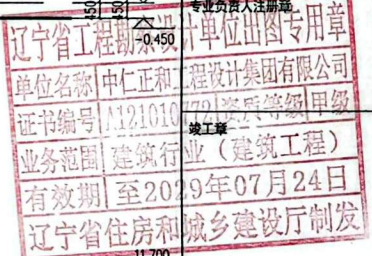 专业负责人注册章
450
50
-0.450
辽宁省工程勘察设计单位出图专用章
单位名称 中仁正和工程设计集团有限公司
证书编号 A121010773 资质等级 甲级
竣工章
业务范围 建筑行业（建筑工程）
有效期 至2029年07月24日
辽宁省住房和城乡建设厅制发
11.700